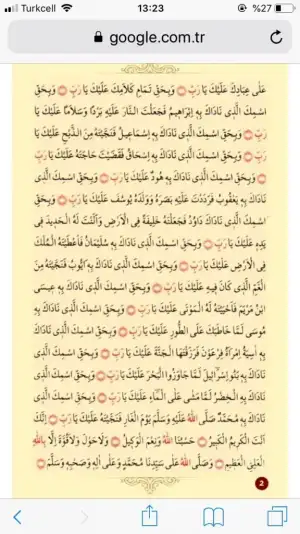 Turkcell 13:23 %27
google.com.tr
عَلَى عِبَادِكَ عَلَيْكَ يَا رَبِّ وَبِحَقِّ تَمَامِ كَلَامِكَ عَلَيْكَ يَا رَبِّ وَبِحَقِّ
اسْمِكَ الَّذِي نَادَاكَ بِهِ اِبْرَاهِيمُ فَجَعَلْتَ النَّارَ عَلَيْهِ بَرْدًا وَسَلَامًا عَلَيْكَ يَا
رَبِّ وَبِحَقِّ اسْمِكَ الَّذِي نَادَاكَ بِهِ اِسْمَاعِيلُ فَنَجَّيْتَهُ مِنَ الذَّبْحِ عَلَيْكَ يَا
رَبِّ وَبِحَقِّ اسْمِكَ الَّذِي نَادَاكَ بِهِ اِسْحَاقُ فَقَضَيْتَ حَاجَتَهُ عَلَيْكَ يَا رَبِّ
وَبِحَقِّ اسْمِكَ الَّذِي نَادَاكَ بِهِ هُودُ عَلَيْكَ يَا رَبِّ وَبِحَقِّ اسْمِكَ الَّذِي
نَادَاكَ بِهِ يَعْقُوبُ فَرَدَدْتَ عَلَيْهِ بَصَرَهُ وَوَلَدَهُ يُوسُفَ عَلَيْكَ يَا رَبِّ وَبِحَقِّ
اسْمِكَ الَّذِي نَادَاكَ دَاوُدُ فَجَعَلْتَهُ خَلِيفَةً فِي الْاَرْضِ وَاَلَنْتَ لَهُ الْحَدِيدَ فِي
يَدِهِ عَلَيْكَ يَا رَبِّ وَبِحَقِّ اسْمِكَ الَّذِي نَادَاكَ بِهِ سُلَيْمَانُ فَاَعْطَيْتَهُ الْمُلْكَ
فِي الْاَرْضِ عَلَيْكَ يَا رَبِّ وَبِحَقِّ اسْمِكَ الَّذِي نَادَاكَ بِهِ اَيُّوبُ فَنَجَّيْتَهُ مِنَ
الْغَمِّ الَّذِي كَانَ فِيهِ عَلَيْكَ يَا رَبِّ وَبِحَقِّ اسْمِكَ الَّذِي نَادَاكَ بِهِ عِيسَى
ابْنُ مَرْيَمَ فَاَحْيَيْتَ لَهُ الْمَوْتَى عَلَيْكَ يَا رَبِّ وَبِحَقِّ اسْمِكَ الَّذِي نَادَاكَ بِهِ
مُوسَى لَمَّا خَاطَبَكَ عَلَى الطُّورِ عَلَيْكَ يَا رَبِّ وَبِحَقِّ اسْمِكَ الَّذِي نَادَاكَ
بِهِ اٰسِيَةُ اِمْرَاَةُ فِرْعَوْنَ فَرَزَقْتَهَا الْجَنَّةَ عَلَيْكَ يَا رَبِّ وَبِحَقِّ اسْمِكَ الَّذِي
نَادَاكَ بِهِ بَنُو اِسْرَائِيلَ لَمَّا جَاوَزُوا الْبَحْرَ عَلَيْكَ يَا رَبِّ وَبِحَقِّ اسْمِكَ الَّذِي
نَادَاكَ بِهِ الْخَضِرُ لَمَّا مَشَى عَلَى الْمَاءِ عَلَيْكَ يَا رَبِّ وَبِحَقِّ اسْمِكَ الَّذِي نَادَاكَ
بِهِ مُحَمَّدٌ صَلَّى اللهُ عَلَيْهِ وَسَلَّمَ يَوْمَ الْغَارِ فَنَجَّيْتَهُ عَلَيْكَ يَا رَبِّ اِنَّكَ
اَنْتَ الْكَرِيمُ الْكَبِيرُ حَسْبُنَا اللهُ وَنِعْمَ الْوَكِيلُ وَلَا حَوْلَ وَلَا قُوَّةَ اِلَّا بِاللهِ
الْعَلِيِّ الْعَظِيمِ وَصَلَّى اللهُ عَلَى سَيِّدِنَا مُحَمَّدٍ وَعَلَى اٰلِهِ وَصَحْبِهِ وَسَلَّمَ
2